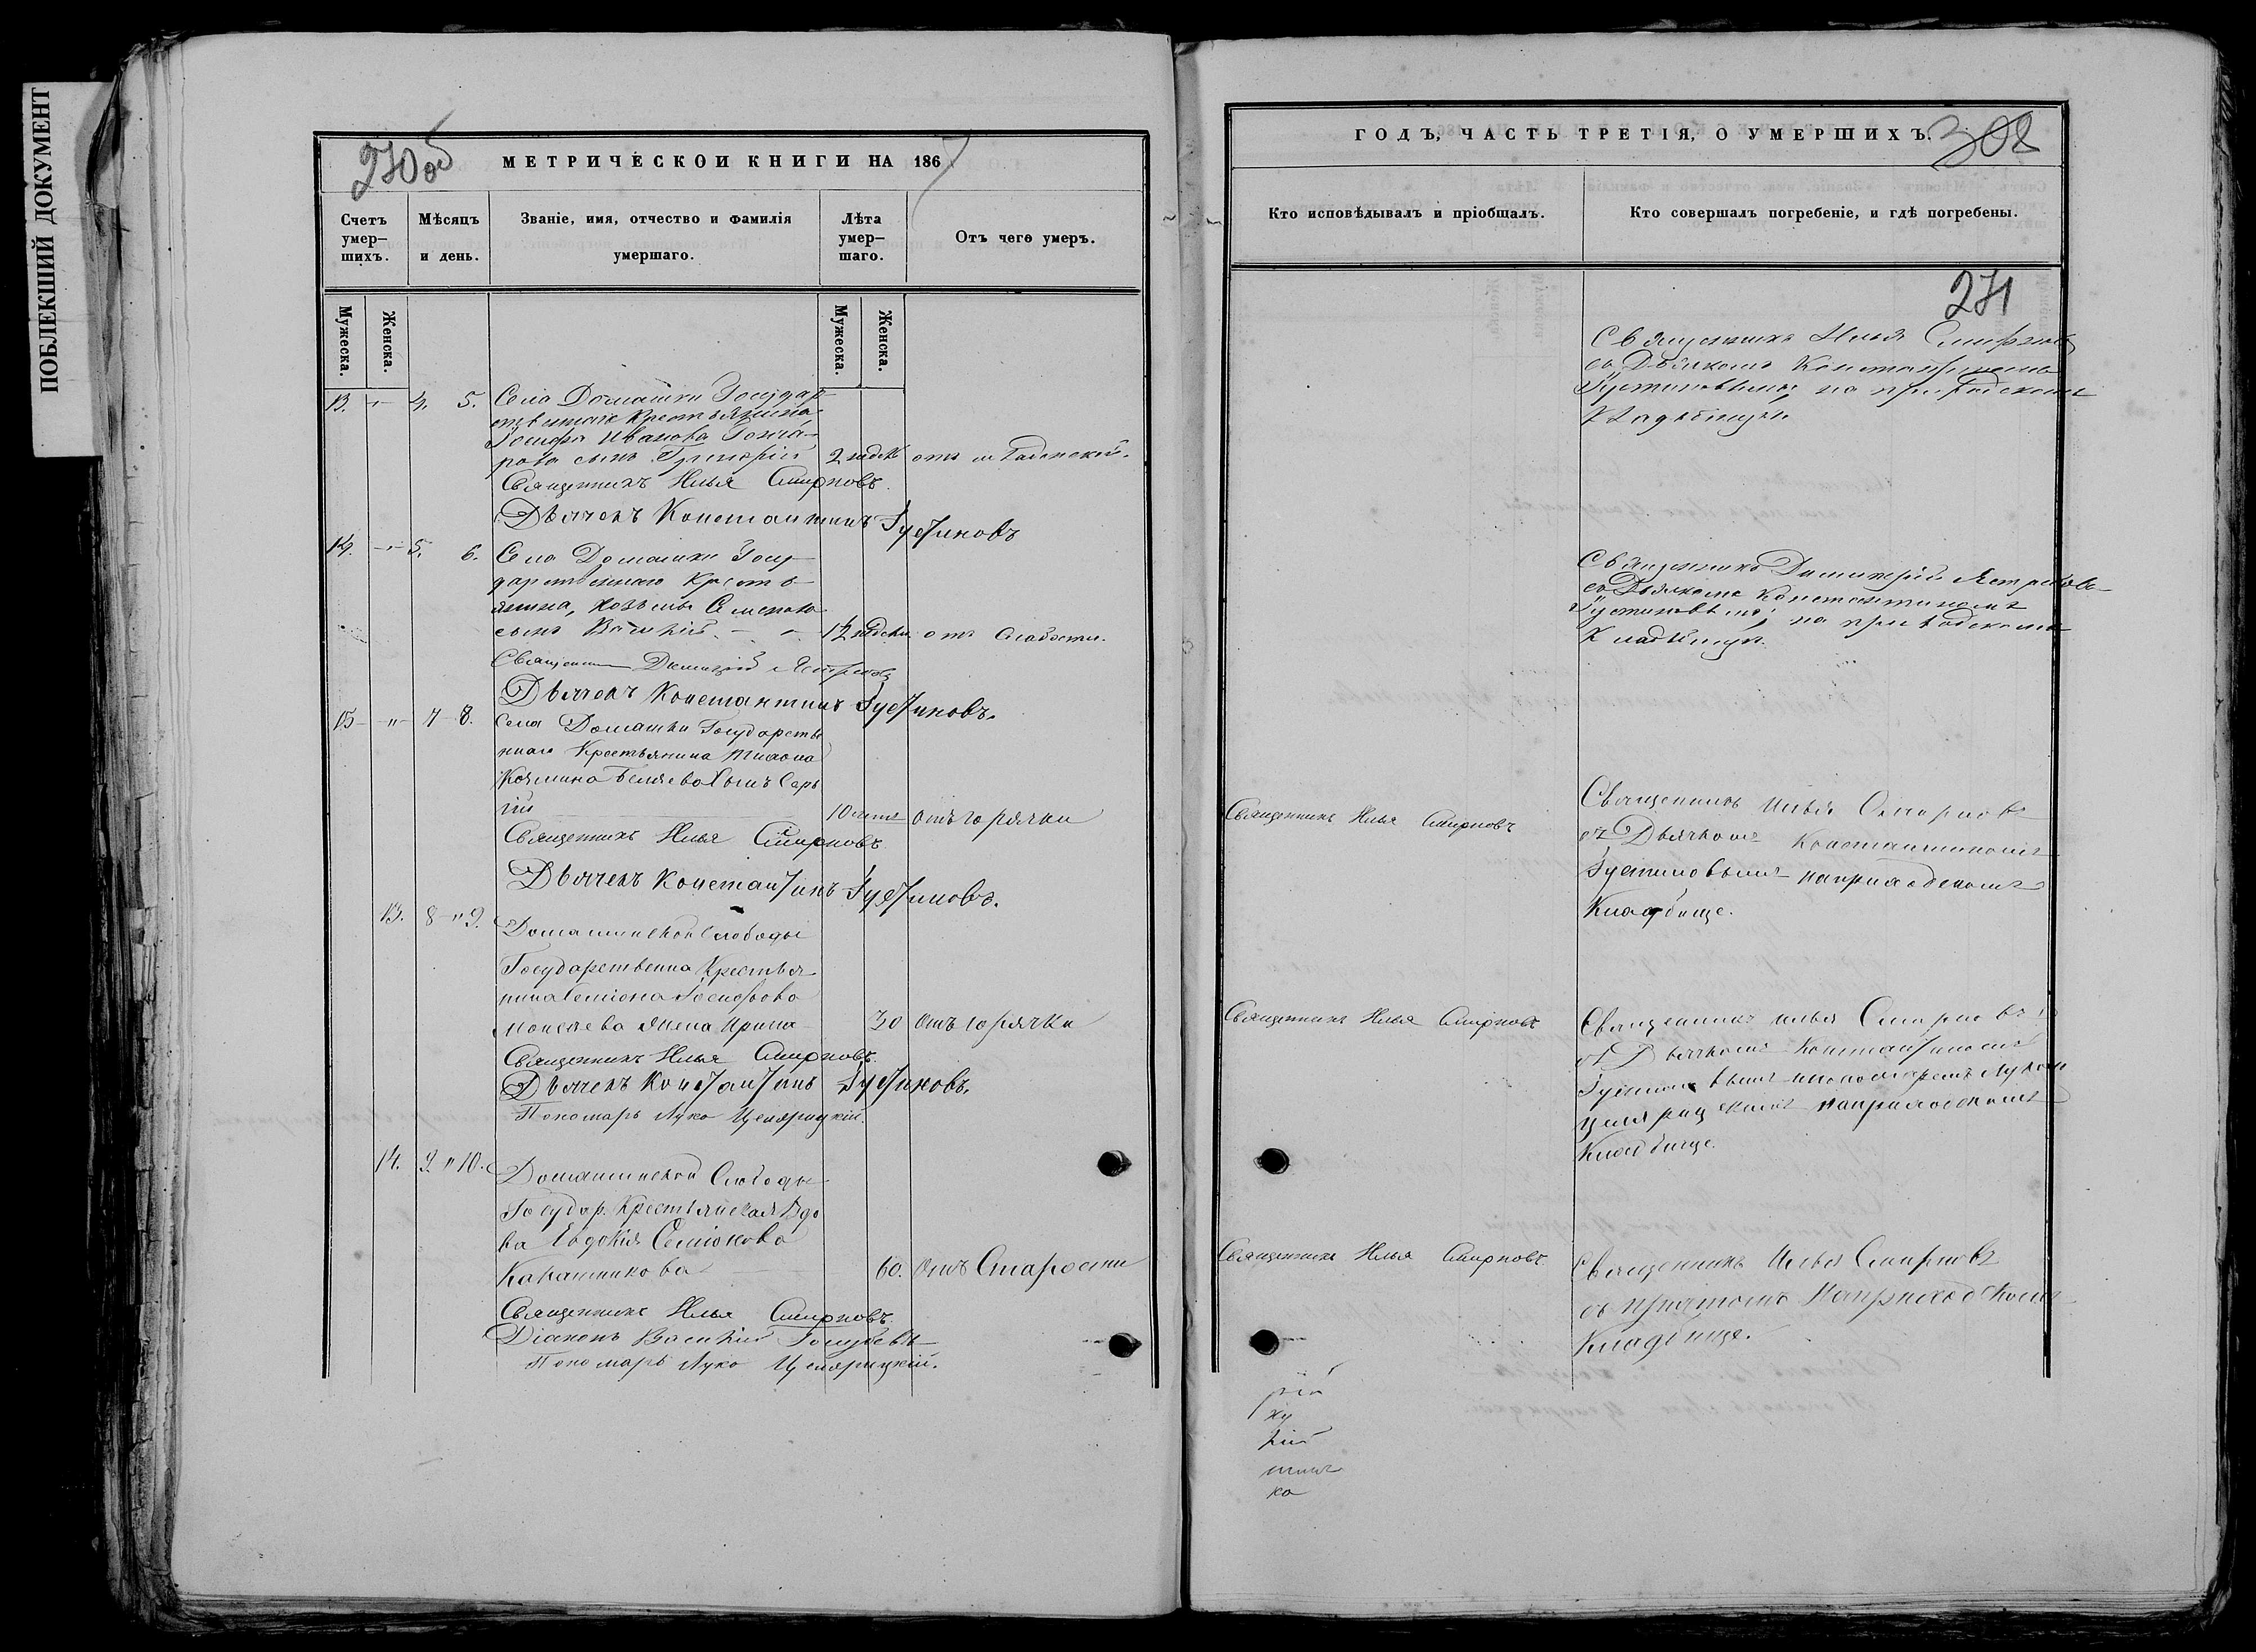 ПОБЛЕКШИЙ ДОКУМЕНТ
270 об
МЕТРИЧЕСКОЙ КНИГИ НА 1867
Счетъ умер-шихъ.
Мѣсяцъ и день.
Званіе, имя, отчество и фамилія умершаго.
Лѣта умер-шаго.
Отъ чего умеръ.
Мужеска.
Женска.
Мужеска.
Женска.
13. 4. 5. Села Домашки Государ-
ственнаго Крестьянина
Іосифа Иванова Гонча-
рова сынъ Григорій 2 недѣл отъ
Священникъ Илья Смирновъ.
Дьячекъ Константинъ Густиновъ
14. 5. 6. Села Домашки Госу-
дарственнаго Кресть-
янина, Козьмы Семенова
сынъ Василій 12 недѣли отъ Слабости.
Священникъ Димитрій Ястребовъ
Дьячекъ Константинъ Густиновъ.
15 " 7 8. Села Домашки Государстве
ннаго Крестьянина
Козмина Беляева Сынъ Сер
гій 10 летъ Отъ горячки
Священникъ Илья Смирновъ.
Дьячекъ Константинъ Густиновъ.
13. 8 " 9. Домашкинской Слободы
Государственна Крестья
нина Семіона Іосифова
Моисеева Жена Ирина 30 Отъ горячки
Священникъ Илья Смирновъ.
Дьячекъ Константинъ Густиновъ.
Пономарь Лука Целярицкій.
14. 9 " 10. Домашкинской Слободы
Государ. Крестьянская Вдо
ва Евдокія Семіонова
Калашникова 60. Отъ Старости
Священникъ Илья Смирновъ.
Діаконъ Василій Голубевъ
Пономарь Лука Целярицкій.
ГОДЪ, ЧАСТЬ ТРЕТІЯ, О УМЕРШИХЪ.
302
Кто исповѣдывалъ и пріобщалъ.
Кто совершалъ погребеніе, и гдѣ погребены.
271
Священникъ Илья Смирновъ
съ Дьячкомъ Константиномъ
Густиновымъ на приходскомъ
Кладбищѣ.
Священникъ Димитрій Ястребовъ
съ Дьячкомъ Константиномъ
Густиновымъ на приходскомъ
Кладбищѣ.
Священникъ Илья Смирновъ
Священникъ Илья Смирновъ
съ Дьячкомъ Константиномъ
Густиновымъ наприходскомъ
Кладбище.
Священникъ Илья Смирновъ
Священникъ Илья Смирновъ
съ Дьячкомъ Константиномъ
Густиновымъ ипономаремъ Лукой
Целярицкимъ наприходскомъ
Кладбище.
Священникъ Илья Смирновъ.
Священникъ Илья Смирновъ
съ причтомъ Наприходскомъ
Кладбище.
рій
ку
кій
ка